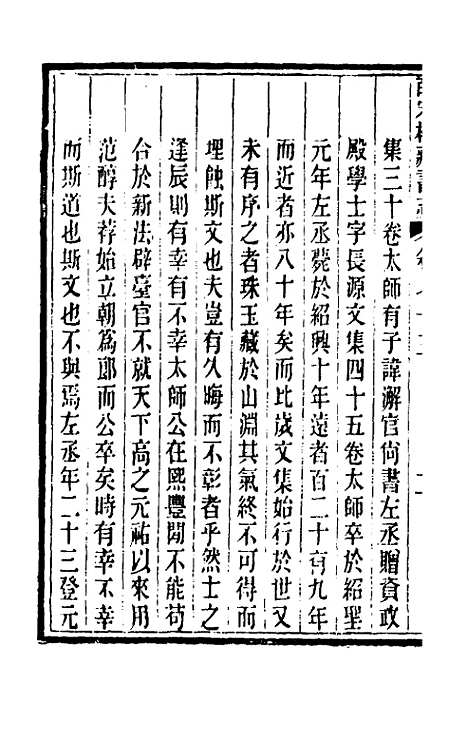 集三十卷太師有子諱澥官尙書左丞贈資政
殿學士字長源文集四十五卷太師卒於紹聖
元年左丞薨於紹興十年遠者百二十有九年
而近者亦八十年矣而比歲文集始行於世又
未有序之者珠玉藏於山淵其氣終不可得而
埋蝕斯文也夫豈有久晦而不彰者乎然士之
逢辰則有幸有不幸太師公在熙豐間不能苟
合於新法辟臺官不就天下高之元祐以來用
范醇夫荐始立朝爲郎而公卒矣時有幸不幸
而斯道也斯文也不與焉左丞年二十三登元